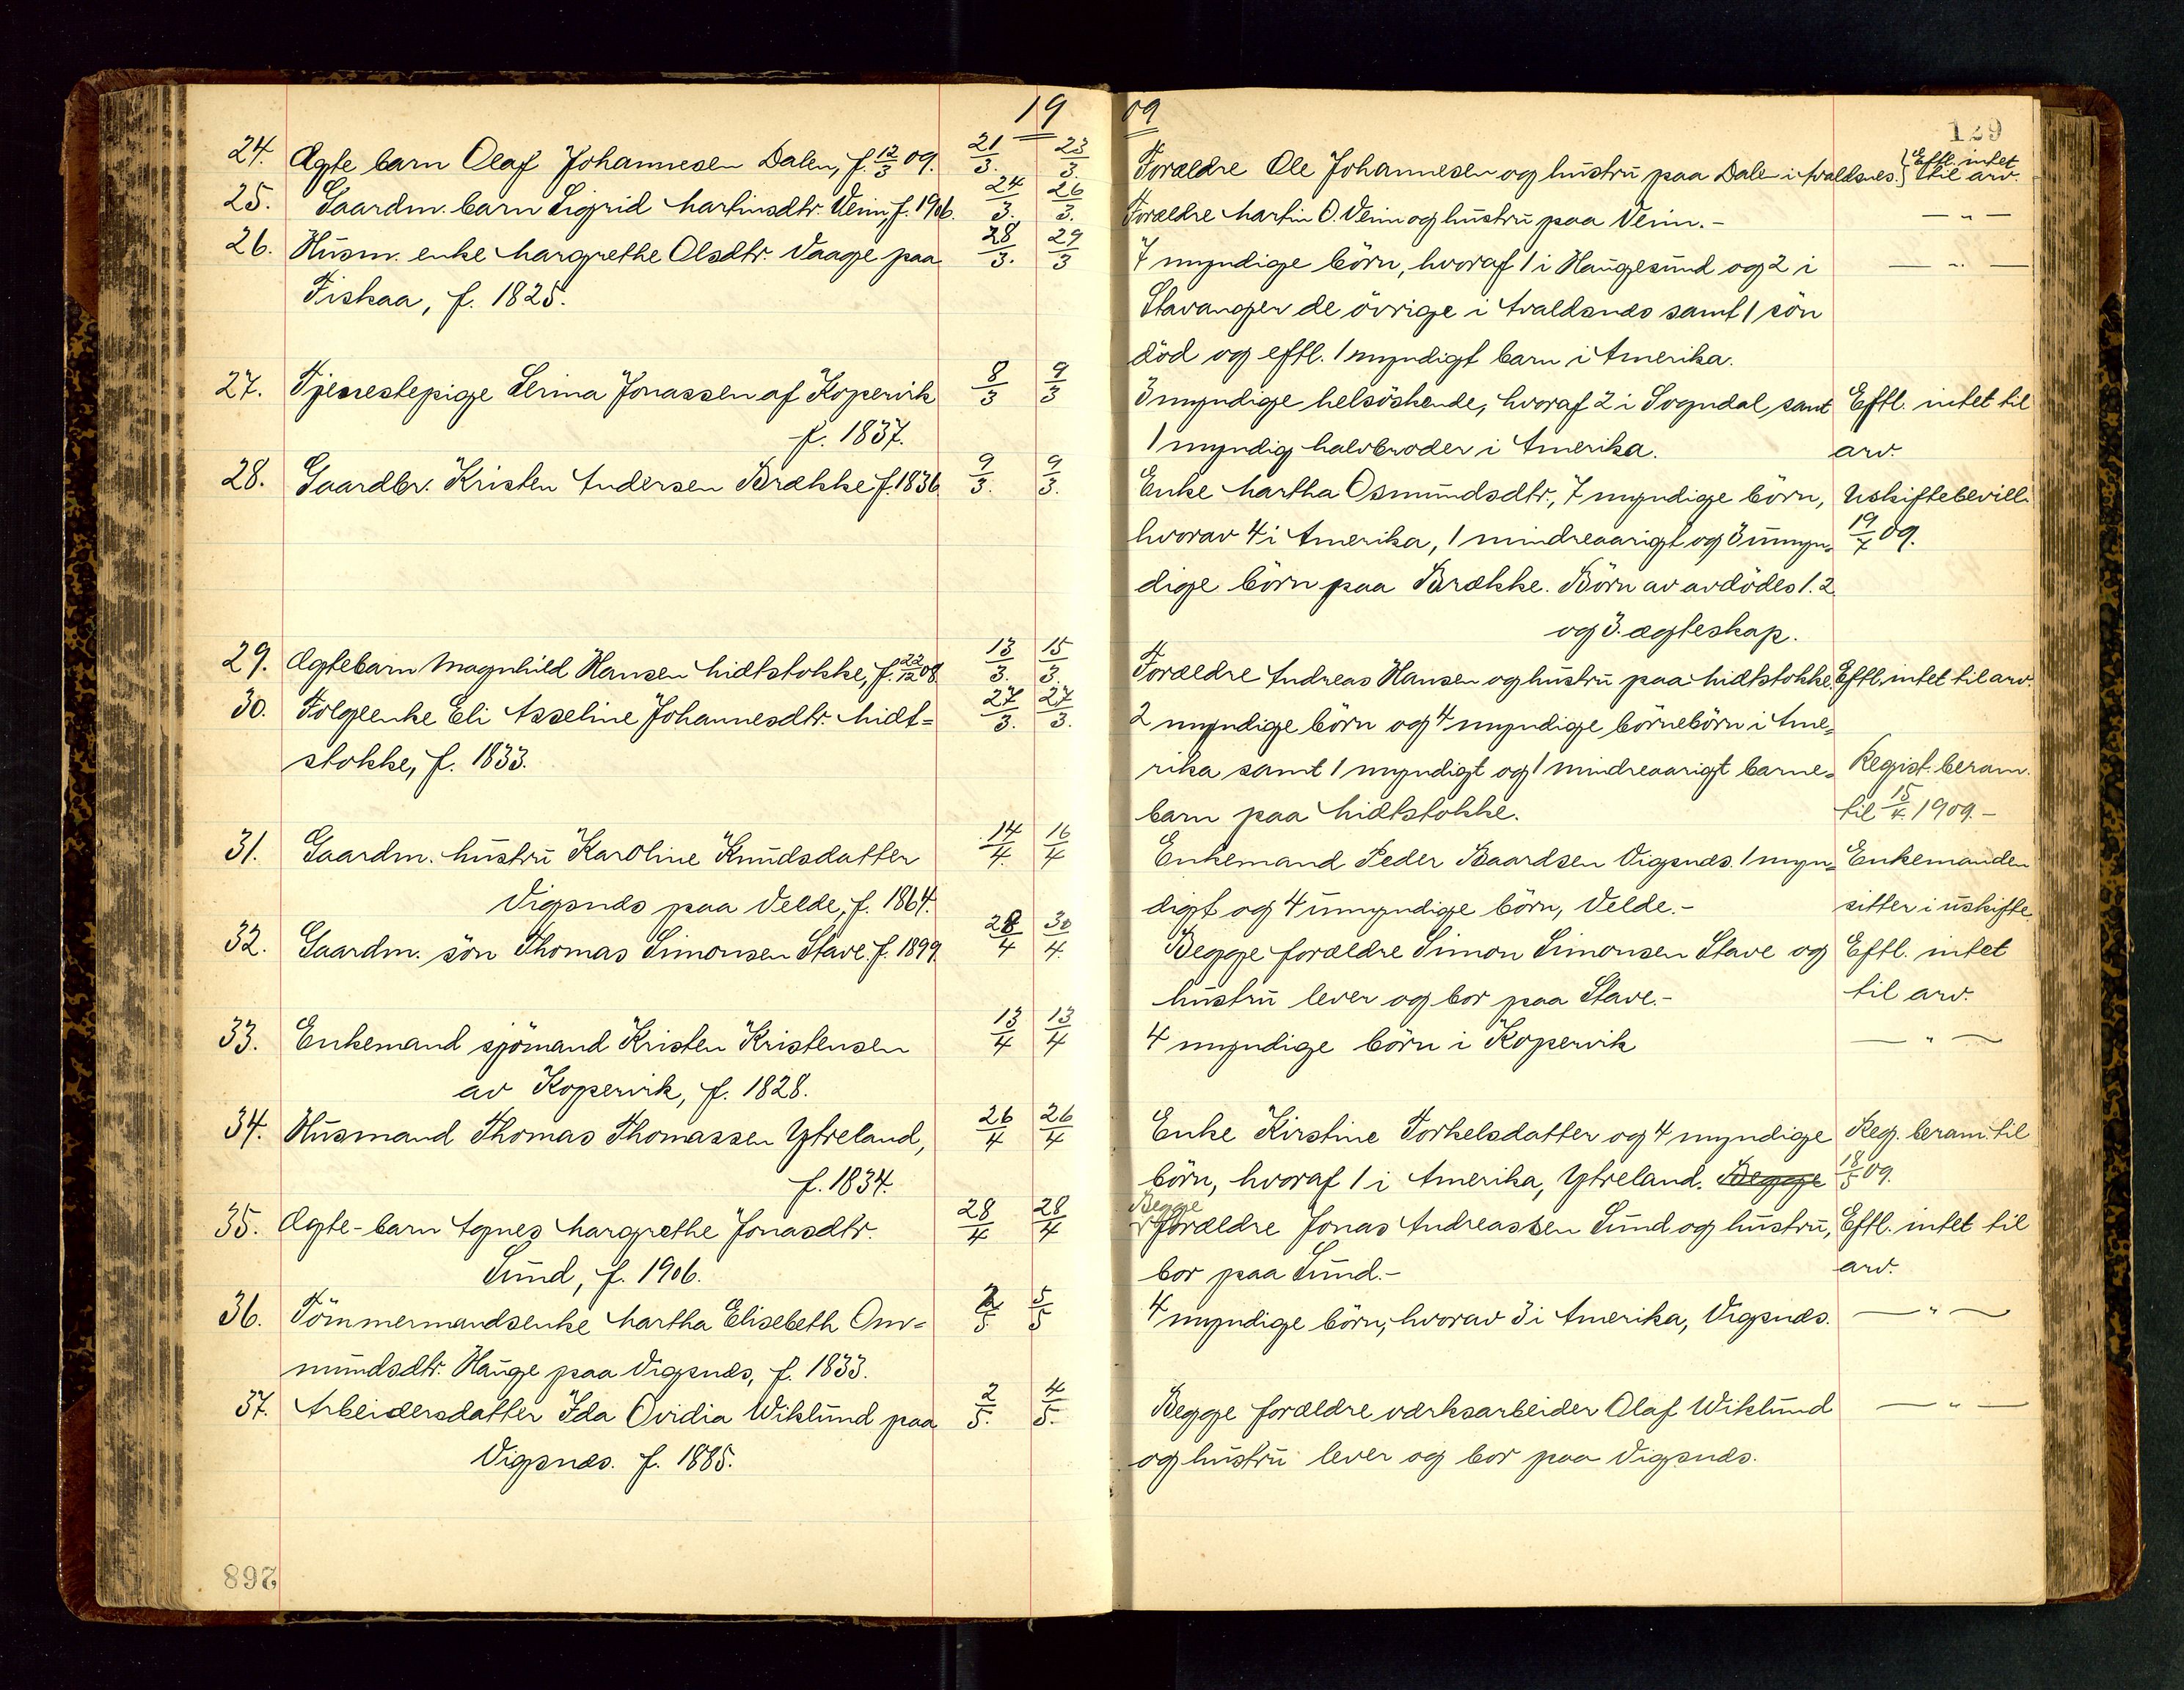 1909
129
24. Ægte barn Olaf Johannesen Dalen, f. 12/3 09. 21/3. 23/3. Forældre Ole Johannesen og hustrū paa Dalen i Avaldsnes. } Eftl. intet
til arv.
25. Gaardm. barn Sigrid Martinsdtr. Veim f. 1906. 24/3. 26/3. Forældre Martin O. Veim og hūstrū paa Veim.- — " —
26. Hūsm. enke Margrethe Olsdtr. Vaage paa 28/3. 29/3 7 myndige börn, hvoraf 1 i Haūgesund og 2 i — " —
Fiskaa, f. 1825. Stavanger de övrige i Avaldsnæs samt 1 sön
död og eftl. 1 myndigt barn i Amerika.
27. Tjenestepige Serina Jonassen af Kopervik 8/3 9/3 3 myndige helsöskende, hvoraf 2 i Sogndal samt Eftl. intet til
f. 1837. 1 myndig halvbroder i Amerika. arv.
28. Gaardbr. Kristen Andersen Brække f. 1836 9/3. 9/3. Enke Martha Osmūndsdtr., 7 myndige börn, Uskiftebevill.
hvorav 4 i Amerika, 1 mindreaarigt og 3 ūmyn= 19/7 09.
dige börn paa Brække. Börn av avdödes 1. 2
og 3. ægteskap.
29. Ægtebarn Magnhild Hansen Midtstokke, f. 22/12 08 13/3. 15/3. Forældre Andreas Hansen og hūstrū paa Midtstokke. Eftl. intet til arv.
30. Fölgeenke Eli Asseline Johannesdtr. Midt= 27/3. 27/3. 2 myndige börn og 4 myndige börnebörn i Ame=
stokke, f. 1833. rika samt 1 myndigt og 1 mindreaarigt barne= Regist. beram.
barn paa Midtstokke. til 15/4 1909.-
31. Gaardm. hūstrū Karoline Knūdsdatter 14/4. 16/4 Enkemand Peder Baardsen Vigsnæs. 1 myn= Enkemanden
Vigsnæs paa Velde, f. 1864. digt og 4 ūmyndige börn, Velde.- sitter i ūskifte
32. Gaardm. sön Thomas Simonsen Stave. f. 1899. 28/4 30/4. Begge forældre Simon Simonsen Stave og Eftl. intet
hūstrū lever og bor paa Stave.- til arv.
33. Enkemand sjömand Kristen Kristensen 13/4 13/4 4 myndige börn i Kopervik — " —
av Kopervik, f. 1828.
34. Hūsmand Thomas Thomassen Ytreland, 26/4 26/4 Enke Kirstine Torkelsdatter og 4 myndige Reg. beram. til
f. 1834. börn, hvoraf 1 i Amerika, Ytreland. Begge 18/5 09.
Begge
35. Ægte-barn Agnes Margrethe Jonasdtr. 28/4 28/4 forældre Jonas Andreassen Sūnd og hūstrū, Eftl. intet til
Sūnd, f. 1906. bor paa Sūnd.- arv.
36. Tömmermandsenke Martha Elisebeth Om= 2/5. 5/5 4 myndige börn, hvorav 3 i Amerika, Vigsnæs. — " —
mūndsdtr. Haūge paa Vigsnæs, f. 1833.
37. Arbeidersdatter Ida Ovidia Wiklūnd paa 2/5. 4/5. Begge forældre værksarbeider Olaf Wiklūnd — " —
Vigsnæs. f. 1885. og hūstrū lever og bor paa Vigsnæs.
268